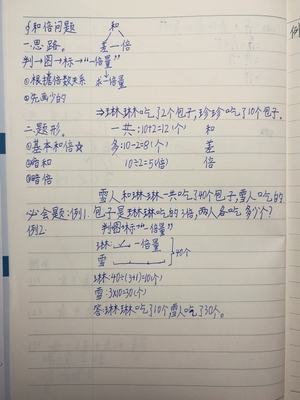 §和倍问题 和
一.思路。 差—倍
判→图→标→“一倍量”
①根据倍数关系 求一倍量
②先画少的
⇒琳琳吃了2个包子,珍珍吃了10个包子.
一共:10+2=12(个) 和
二.题形。
①基本和倍☆ 多:10-2=8(个) 差
②暗和 10÷2=5(倍) 倍
③暗倍
雪人和琳琳一共吃了40个包子,雪人吃的
必会题:例1. 包子是琳琳吃的3倍,两人各吃多少个?
例2. 判图标“一倍量”
琳: 一倍量
雪: 40个
琳:40÷(3+1)=10(个)
雪:3×10=30(个)
答:琳琳吃了10个,雪人吃了30个。
例